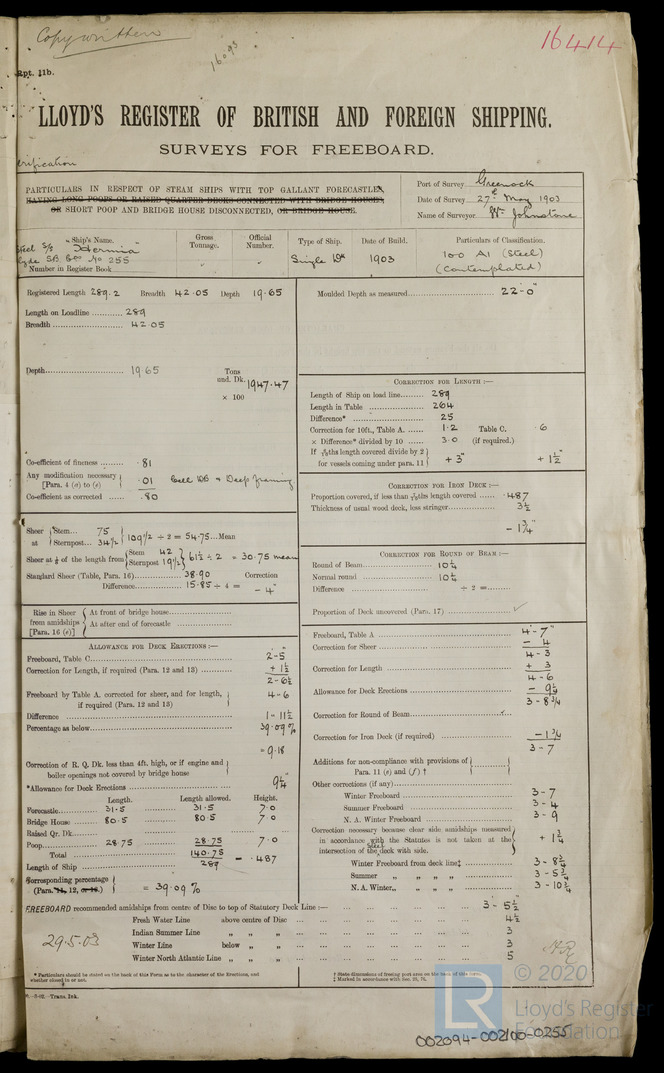 Copy written
16093
16414
Rpt. 11b.
LLOYD'S REGISTER OF BRITISH AND FOREIGN SHIPPING.
SURVEYS FOR FREEBOARD.
erification
PARTICULARS IN RESPECT OF STEAM SHIPS WITH TOP GALLANT FORECASTLES,
HAVING LONG POOPS OR RAISED QUARTER DECKS CONNECTED WITH BRIDGE HOUSES,
OR SHORT POOP AND BRIDGE HOUSE DISCONNECTED, OR BRIDGE HOUSE.
Port of Survey Greenock
Date of Survey 27th May 1903
Name of Surveyor Wm. Johnstone
Ship's Name. Gross Tonnage. Official Number. Type of Ship. Date of Build. Particulars of Classification.
Steel S/S "Hermia"
Clyde S.B. Coy No 255
Number in Register Book
Single Dk 1903 100 A1 (Steel)
(Contemplated)
Registered Length 289.2 Breadth 42.05 Depth 19.65
Length on Loadline 289
Breadth 42.05
Depth 19.65 Tons und. Dk. 1947.47
× 100
Co-efficient of fineness .81
Any modification necessary [Para. 4 (a) to (e) .01 Cell DB & Deep Framing
Co-efficient as corrected .80
Sheer at Stem 75 Sternpost 34½ } 109½ ÷ 2 = 54.75 Mean
Sheer at ⅛ of the length from Stem 42 Sternpost 19½ } 61½ ÷ 2 = 30.75 mean
Standard Sheer (Table, Para. 16) 38.90 Correction
Difference 15.85 ÷ 4 = - 4"
Rise in Sheer from amidships [Para. 16 (e)]
At front of bridge house
At after end of forecastle
ALLOWANCE FOR DECK ERECTIONS :—
Freeboard, Table C 2-5
Correction for Length, if required (Para. 12 and 13) + 1½
2-6½
Freeboard by Table A. corrected for sheer, and for length, if required (Para. 12 and 13) 4-6
Difference 1-11½
Percentage as below 39.09%
= 9.18
Correction of R. Q. Dk. less than 4ft. high, or if engine and
boiler openings not covered by bridge house
*Allowance for Deck Erections 9¼"
Length. Length allowed. Height.
Forecastle 31.5 31.5 7.0
Bridge House 80.5 80.5 7.0
Raised Qr. Dk.
Poop 28.75 28.75 7.0
Total 140.75
Length of Ship 289 = .487
Corresponding percentage (Para. 11, 12, or 13.) = 39.09 %
Moulded Depth as measured 22-0"
CORRECTION FOR LENGTH :—
Length of Ship on load line 289
Length in Table 264
Difference* 25
Correction for 10ft., Table A. 1.2 Table C. .6
× Difference* divided by 10 3.0 (if required.)
If 6/10ths length covered divide by 2
for vessels coming under para. 11 + 3" + 1½"
CORRECTION FOR IRON DECK :—
Proportion covered, if less than 7/10ths length covered .487
Thickness of usual wood deck, less stringer 3½
- 1¾"
CORRECTION FOR ROUND OF BEAM :—
Round of Beam 10¼
Normal round 10¼
Difference ÷ 2 =
Proportion of Deck uncovered (Para. 17)
Freeboard, Table A 4-7"
Correction for Sheer - 4
4-3
Correction for Length + 3
4-6
Allowance for Deck Erections - 9¼
3-8¾
Correction for Round of Beam
Correction for Iron Deck (if required) - 1¾
3-7
Additions for non-compliance with provisions of Para. 11 (e) and (f) †
Other corrections (if any)
Winter Freeboard 3-7
Summer Freeboard 3-4
N. A. Winter Freeboard 3-9
Correction necessary because clear side amidships measured
in accordance with the Statutes is not taken at the
intersection of the Steel deck with side. + 1¾
Winter Freeboard from deck line‡ 3-8¾
Summer „ „ „ „ 3-5¾
N. A. Winter „ „ „ „ 3-10¾
FREEBOARD recommended amidships from centre of Disc to top of Statutory Deck Line :— 3-5½
Fresh Water Line above centre of Disc 4½
Indian Summer Line „ „ 3
Winter Line below „ „ 3
Winter North Atlantic Line „ „ 5
29.5.03
* Particulars should be stated on the back of this Form as to the character of the Erections, and
whether closed in or not.
† State dimensions of freeing port area on the back of this form.
‡ Marked in accordance with
Trans. Ink.
© 2020
LR
Lloyd's Register
Foundation
002094-002100-0255